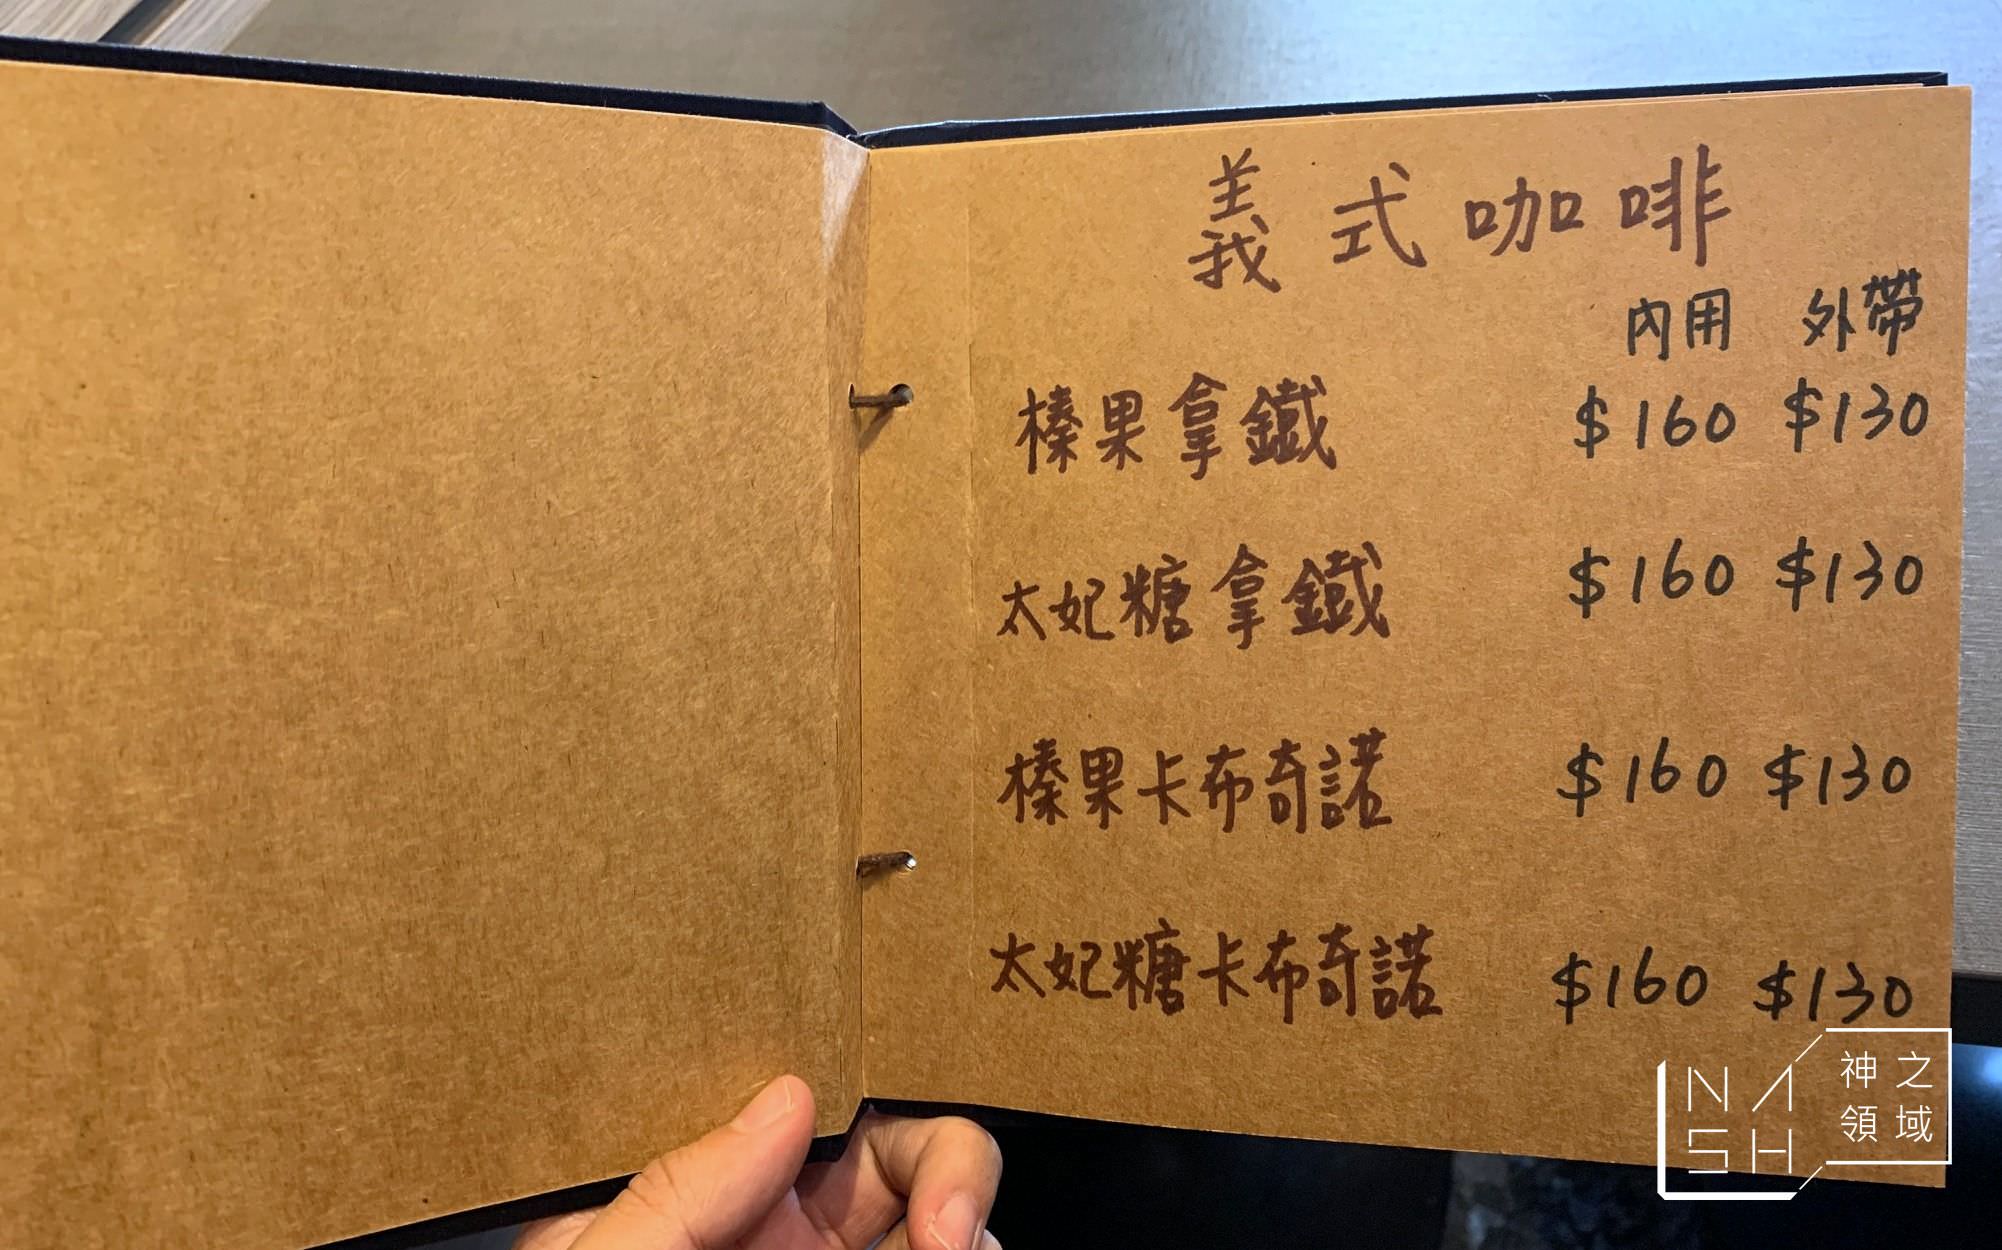 義式咖啡
內用 外帶
榛果拿鐵 $160 $130
太妃糖拿鐵 $160 $130
榛果卡布奇諾 $160 $130
太妃糖卡布奇諾 $160 $130
NASH
神之
領域